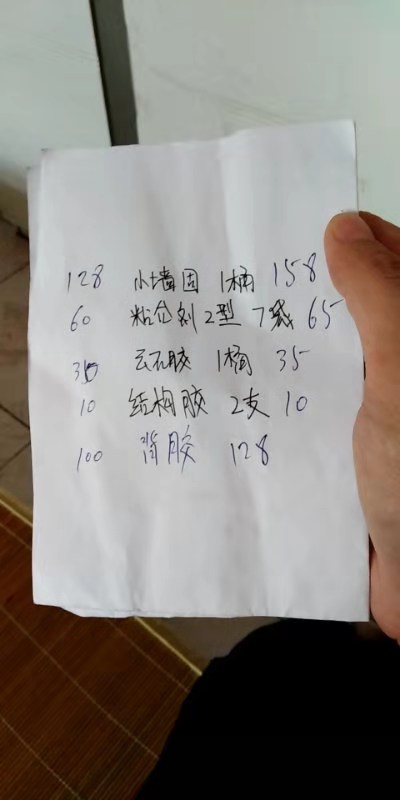 128 小墙固 1桶 158
60 粘合剂2型 7袋 65
30 云石胶 1桶 35
10 结构胶 2支 10
100 背胶 128